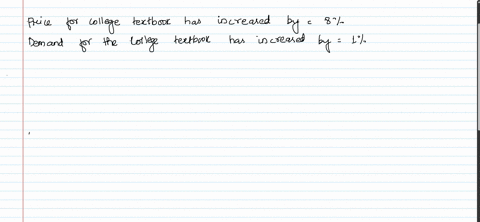 Price for college textbook has increased by = 8%.
Demand for the college textbook has increased by = 1%.